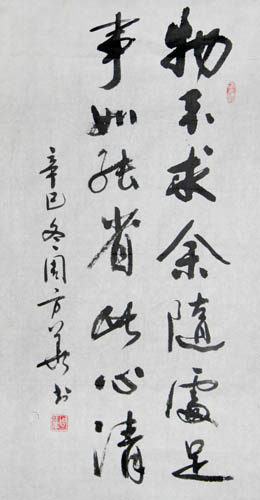 物不求余隨處足
事如能省此心清
辛巳冬周方華书